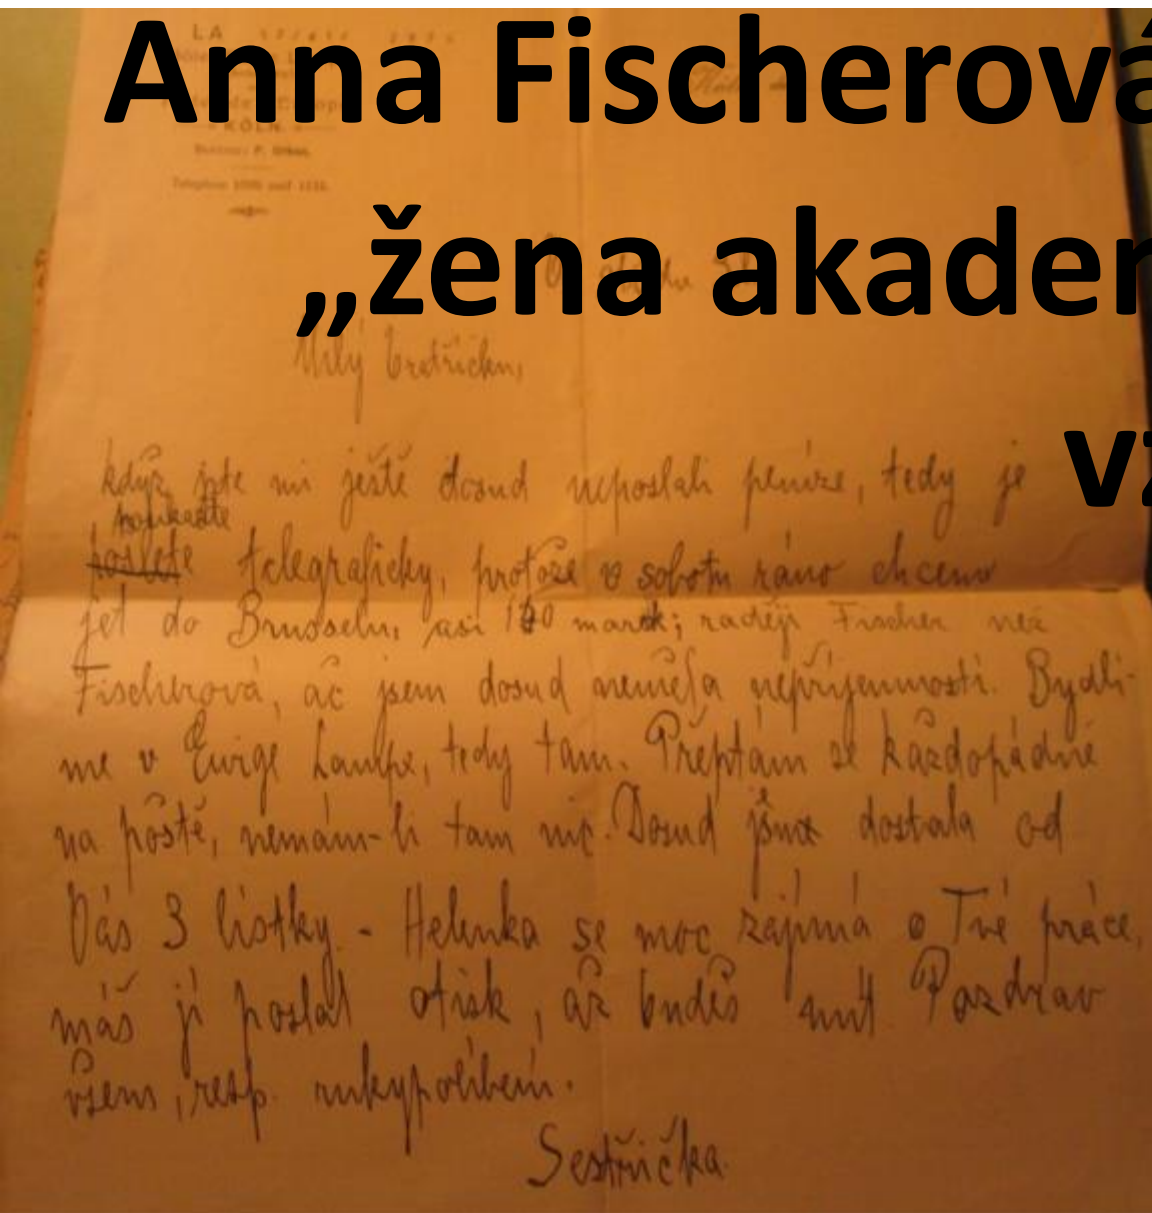 Anna Fischerová
„žena akadem
vz
LA
KÖLN.
Milý bratříčku,
když jste mi ještě dosud neposlali peníze, tedy je
poukažte
pošlete telegraficky, protože v sobotu ráno chceme
jet do Brusselu, asi marek; raději Fischer než
Fischerová, ač jsem dosud neměla nepříjemnosti. Bydlí-
me v Ewige Lampe, tedy tam. Přeptám se každopádně
na poště, nemám-li tam nic. Dosud jsme dostala od
Vás 3 lístky. - Helenka se moc zajímá o Tvé práce,
máš jí poslat otisk, až budeš mít Pozdrav
všem, resp. rukypolíbení.
Sestřička.